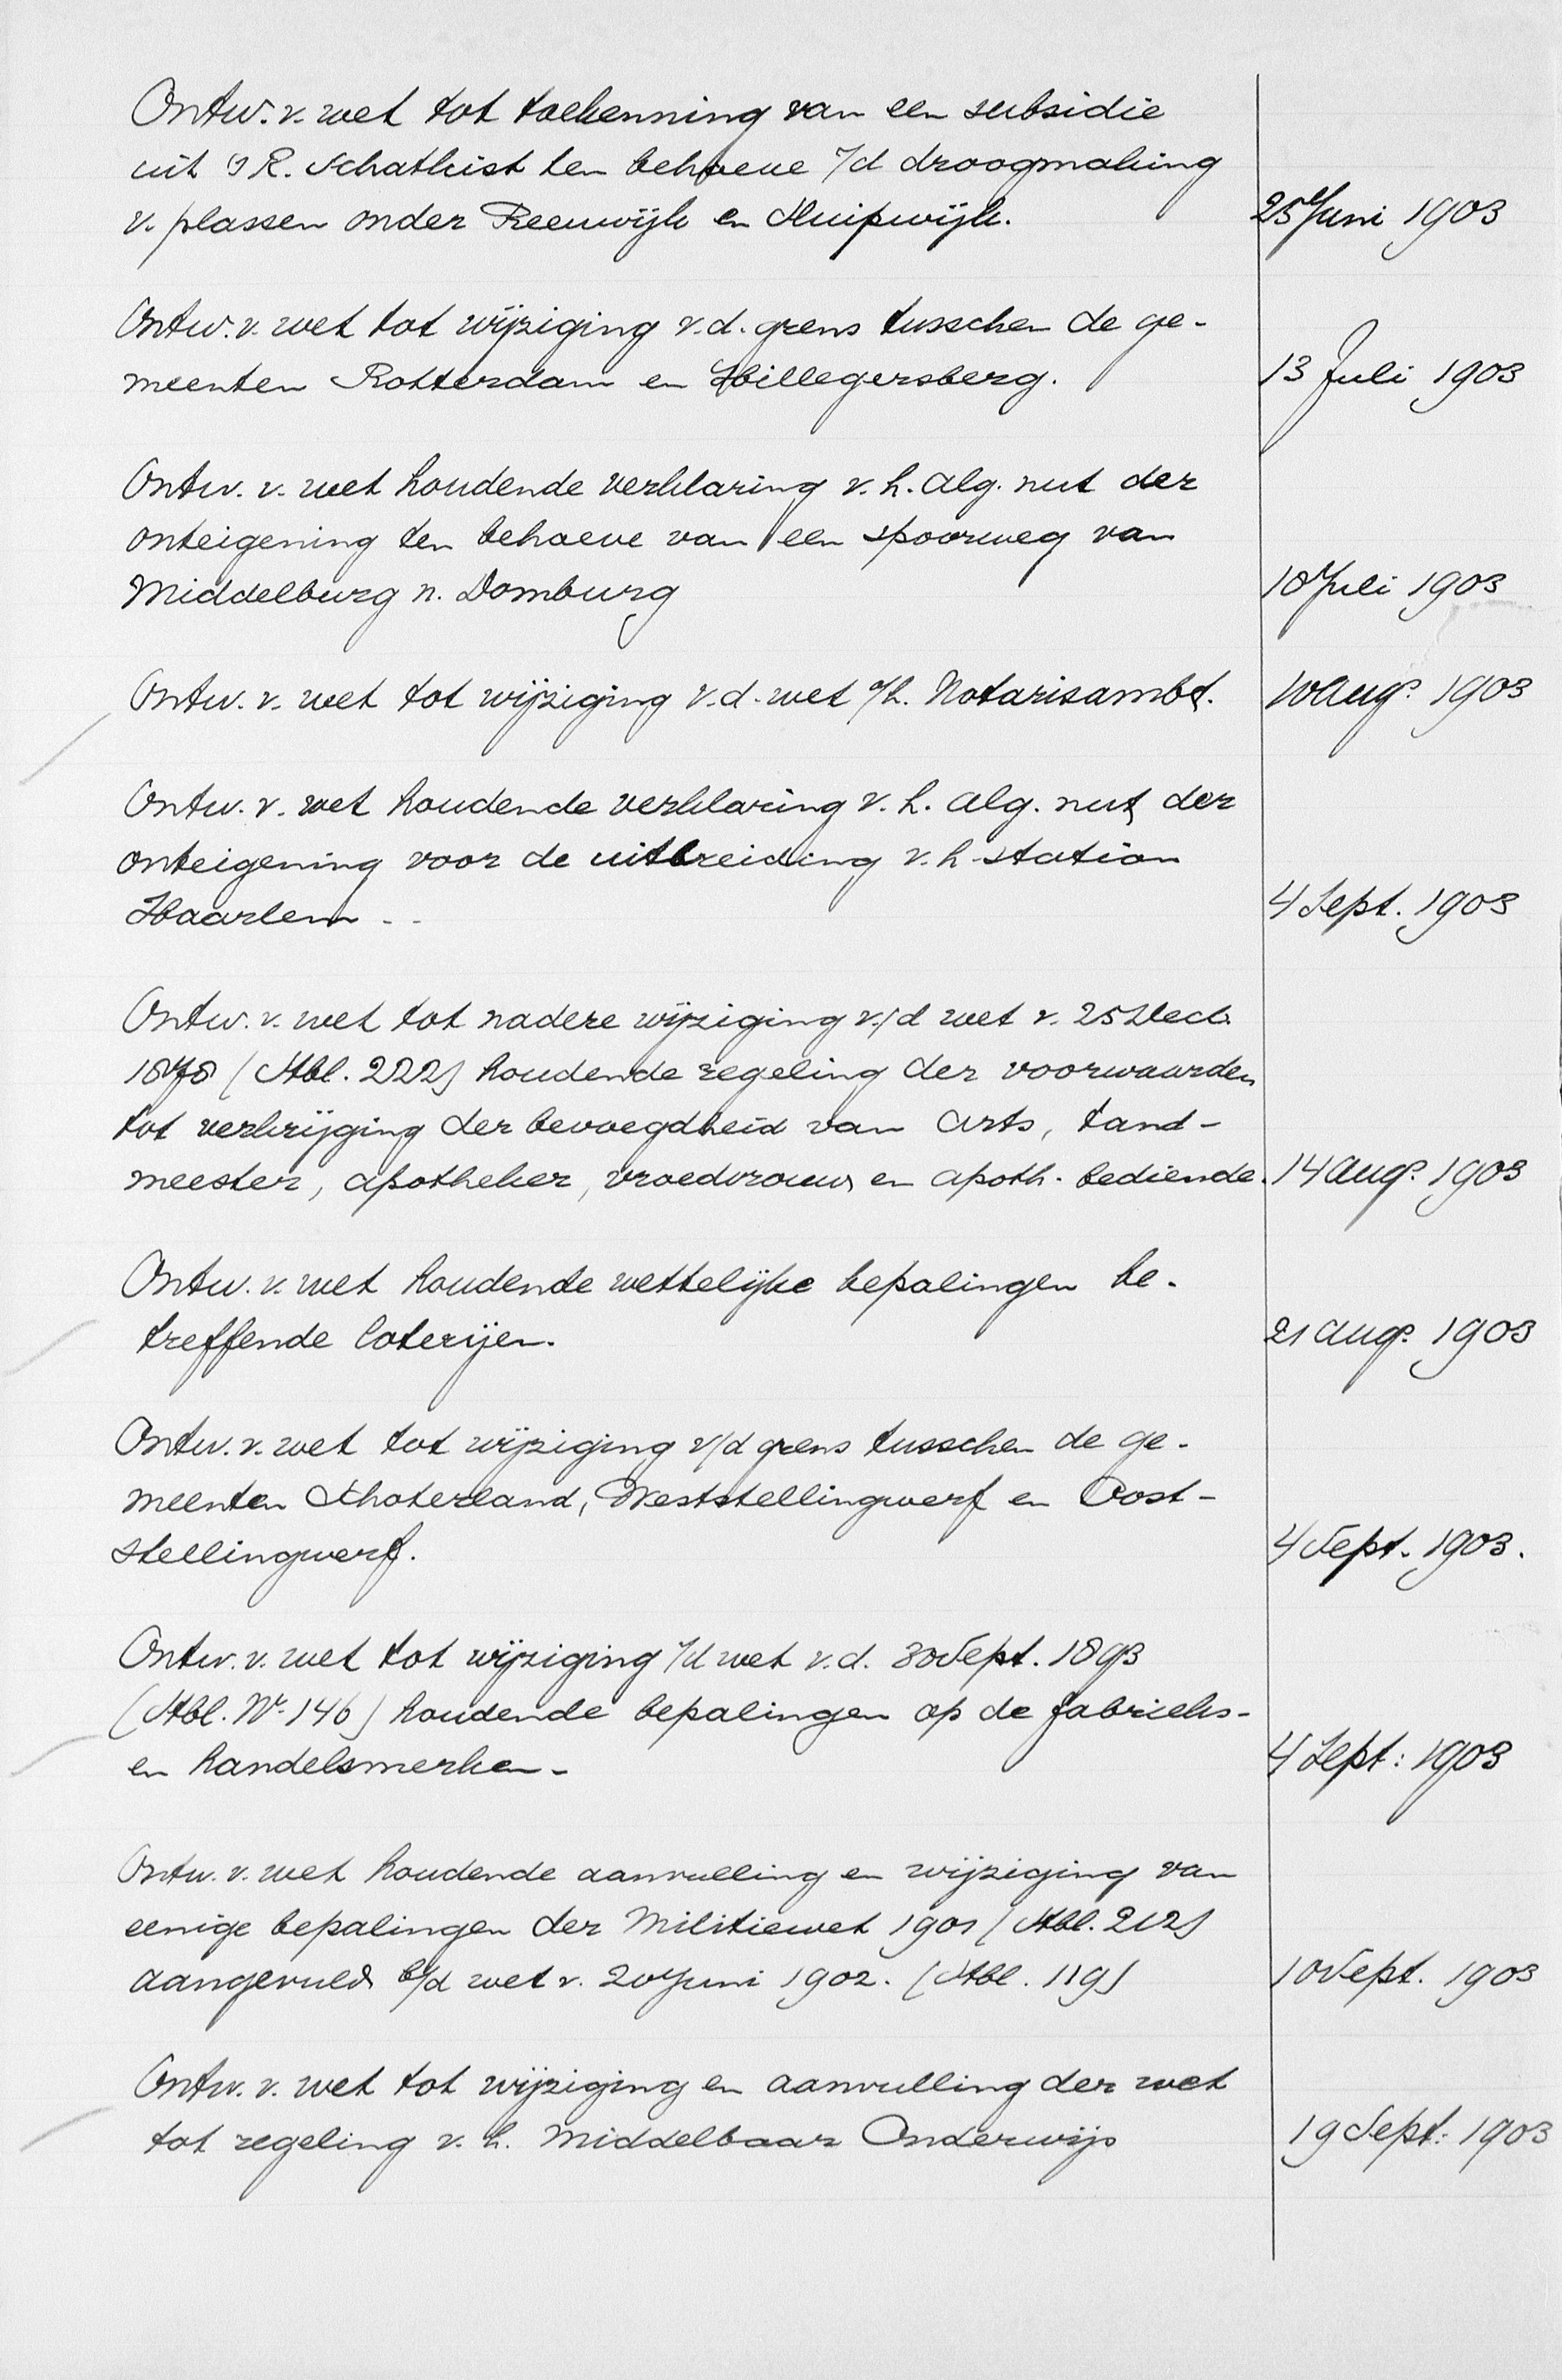 Ontw. v. wet tot toekenning van een subsidie
uit 's R. Schatkist ten behoeve v/d droogmaking
v. plassen onder Reeuwijk en Sluipwijk.
25 Juni 1903
Ontw. v. wet tot wijziging v.d. grens tusschen de ge-
meenten Rotterdam en Hillegersberg.
13 Juli 1903
Ontw. v. wet houdende verklaring v. h. alg. nut der
onteigening ten behoeve van een spoorweg van
Middelburg n. Domburg
18 Juli 1903
Ontw. v. wet tot wijziging v.d. wet o/h. Notarisambt.
10 Aug. 1903
Ontw. v. wet houdende verklaring v. h. alg. nut der
onteigening voor de uitbreiding v. h. station
Haarlem --
4 Sept. 1903
Ontw. v. wet tot nadere wijziging v/d wet v. 25 Dec.
1878 (Stbl. 222) houdende regeling der voorwaarden
tot verkrijging der bevoegdheid van arts, tand-
meester, apotheker, vroedvrouw en apoth. bediende.
14 Aug. 1903
Ontw. v. wet houdende wettelijke bepalingen be-
treffende loterijen.
21 Aug. 1903
Ontw. v. wet tot wijziging v/d grens tusschen de ge-
meenten Schoterland, Weststellingwerf en Oost-
stellingwerf.
4 Sept. 1903.
Ontw. v. wet tot wijziging v/d wet v.d. 30 Sept. 1893
(Stbl. No. 146) houdende bepalingen op de fabrieks-
en handelsmerken -
4 Sept: 1903
Ontw. v. wet houdende aanvulling en wijziging van
eenige bepalingen der Militiewet 1901 (Stbl. 212)
aangevuld b/d wet v. 20 Juni 1902. (Stbl. 119)
10 Sept. 1903
Ontw. v. wet tot wijziging en aanvulling der wet
tot regeling v. h. Middelbaar Onderwijs
19 Sept: 1903